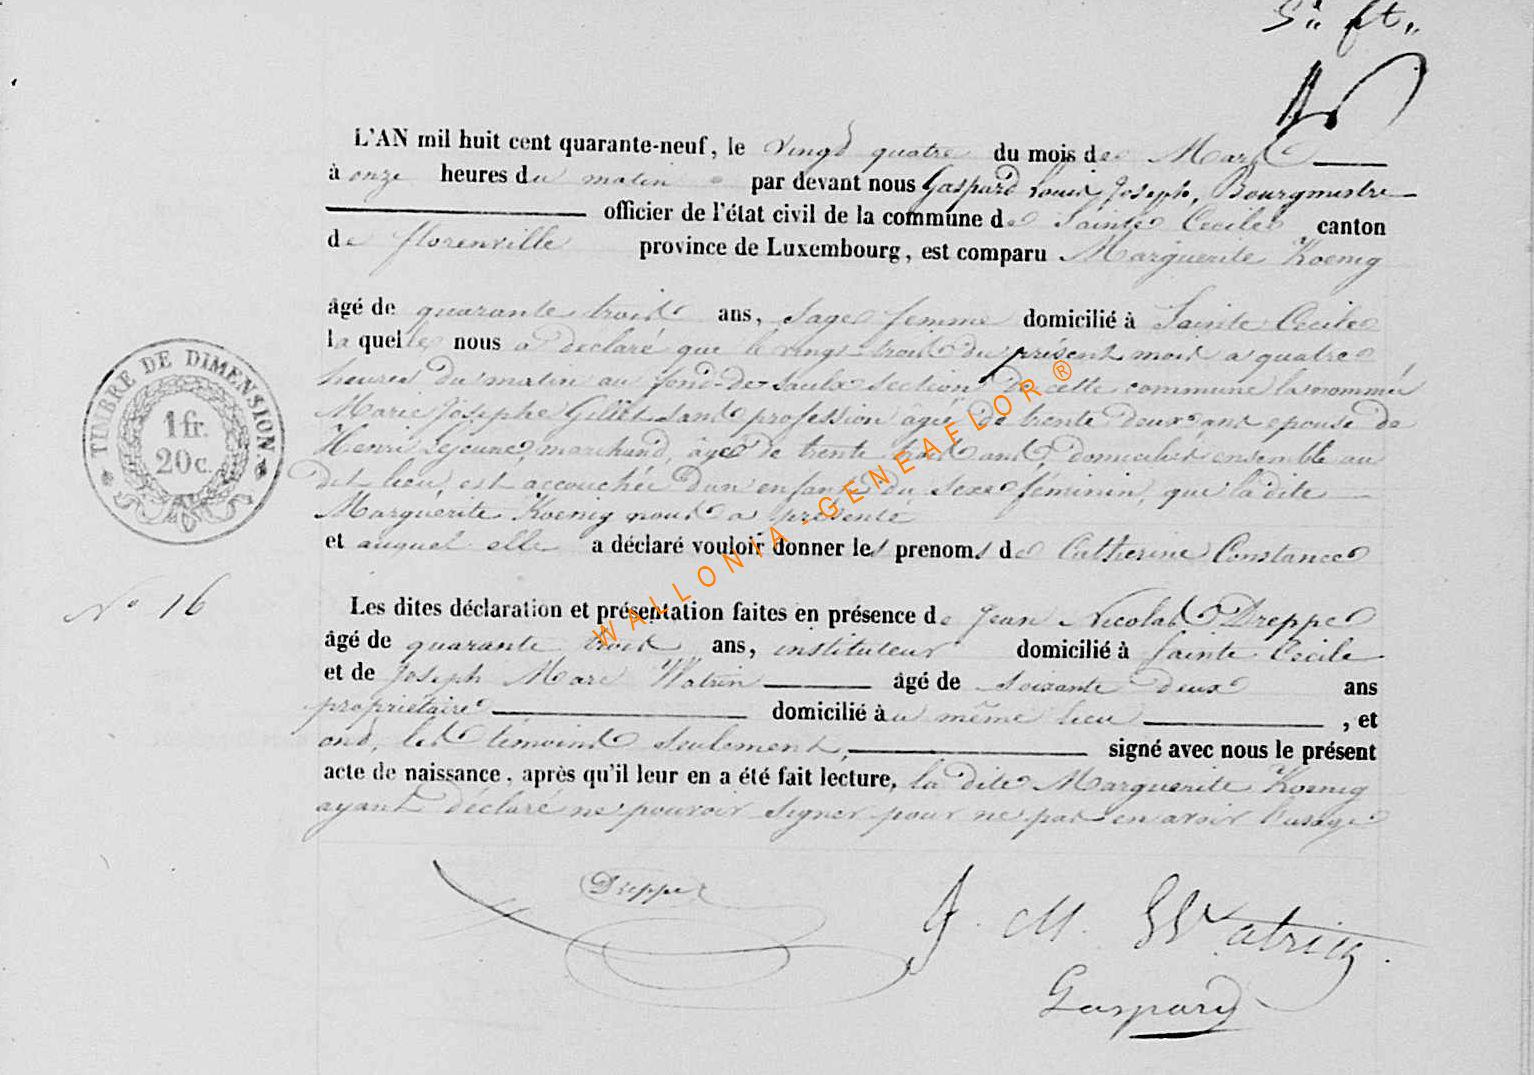 5" ft"
L'AN mil huit cent quarante-neuf, le vingt quatre du mois de Mars
à onze heures du matin par devant nous Gaspard Louis Joseph, Bourgmestre
officier de l'état civil de la commune de Sainte Cecile, canton
de florenville province de Luxembourg, est comparu Marguerite Koenig
âgé de quarante trois ans, sage femme domicilié à Sainte Cecile
la quelle nous a déclaré que le vingt trois du présent mois a quatre
heures du matin au fond-de-saulx section de cette commune la nommée
Marie Josephe Gillet sans profession âgée de trente deux ans epouse de
Henri Lejeune, marchand, âgé de trente trois ans, domiciliés ensemble au
dit lieu, est accouchée d'un enfant du sexe féminin, que la dite
Marguerite Koenig nous a présenté
et auquel elle a déclaré vouloir donner les prenoms de Catherine Constance
Les dites déclaration et présentation faites en présence de Jean Nicolas Dreppe
âgé de quarante trois ans, instituteur domicilié à Sainte Cecile
et de Joseph Marc Watrin âgé de soixante deux ans
propriétaire domicilié au même lieu, et
ond, les témoins seulement, signé avec nous le présent
acte de naissance, après qu'il leur en a été fait lecture, la dite Marguerite Koenig
ayant déclaré ne pouvoir signer pour ne pas en avoir l'usage
TIMBRE DE DIMENSION
1 fr.
20 c.
No 16
Dreppe
J. M. Watrin
Gaspard
WALLONIA-GENEAFLOR ®